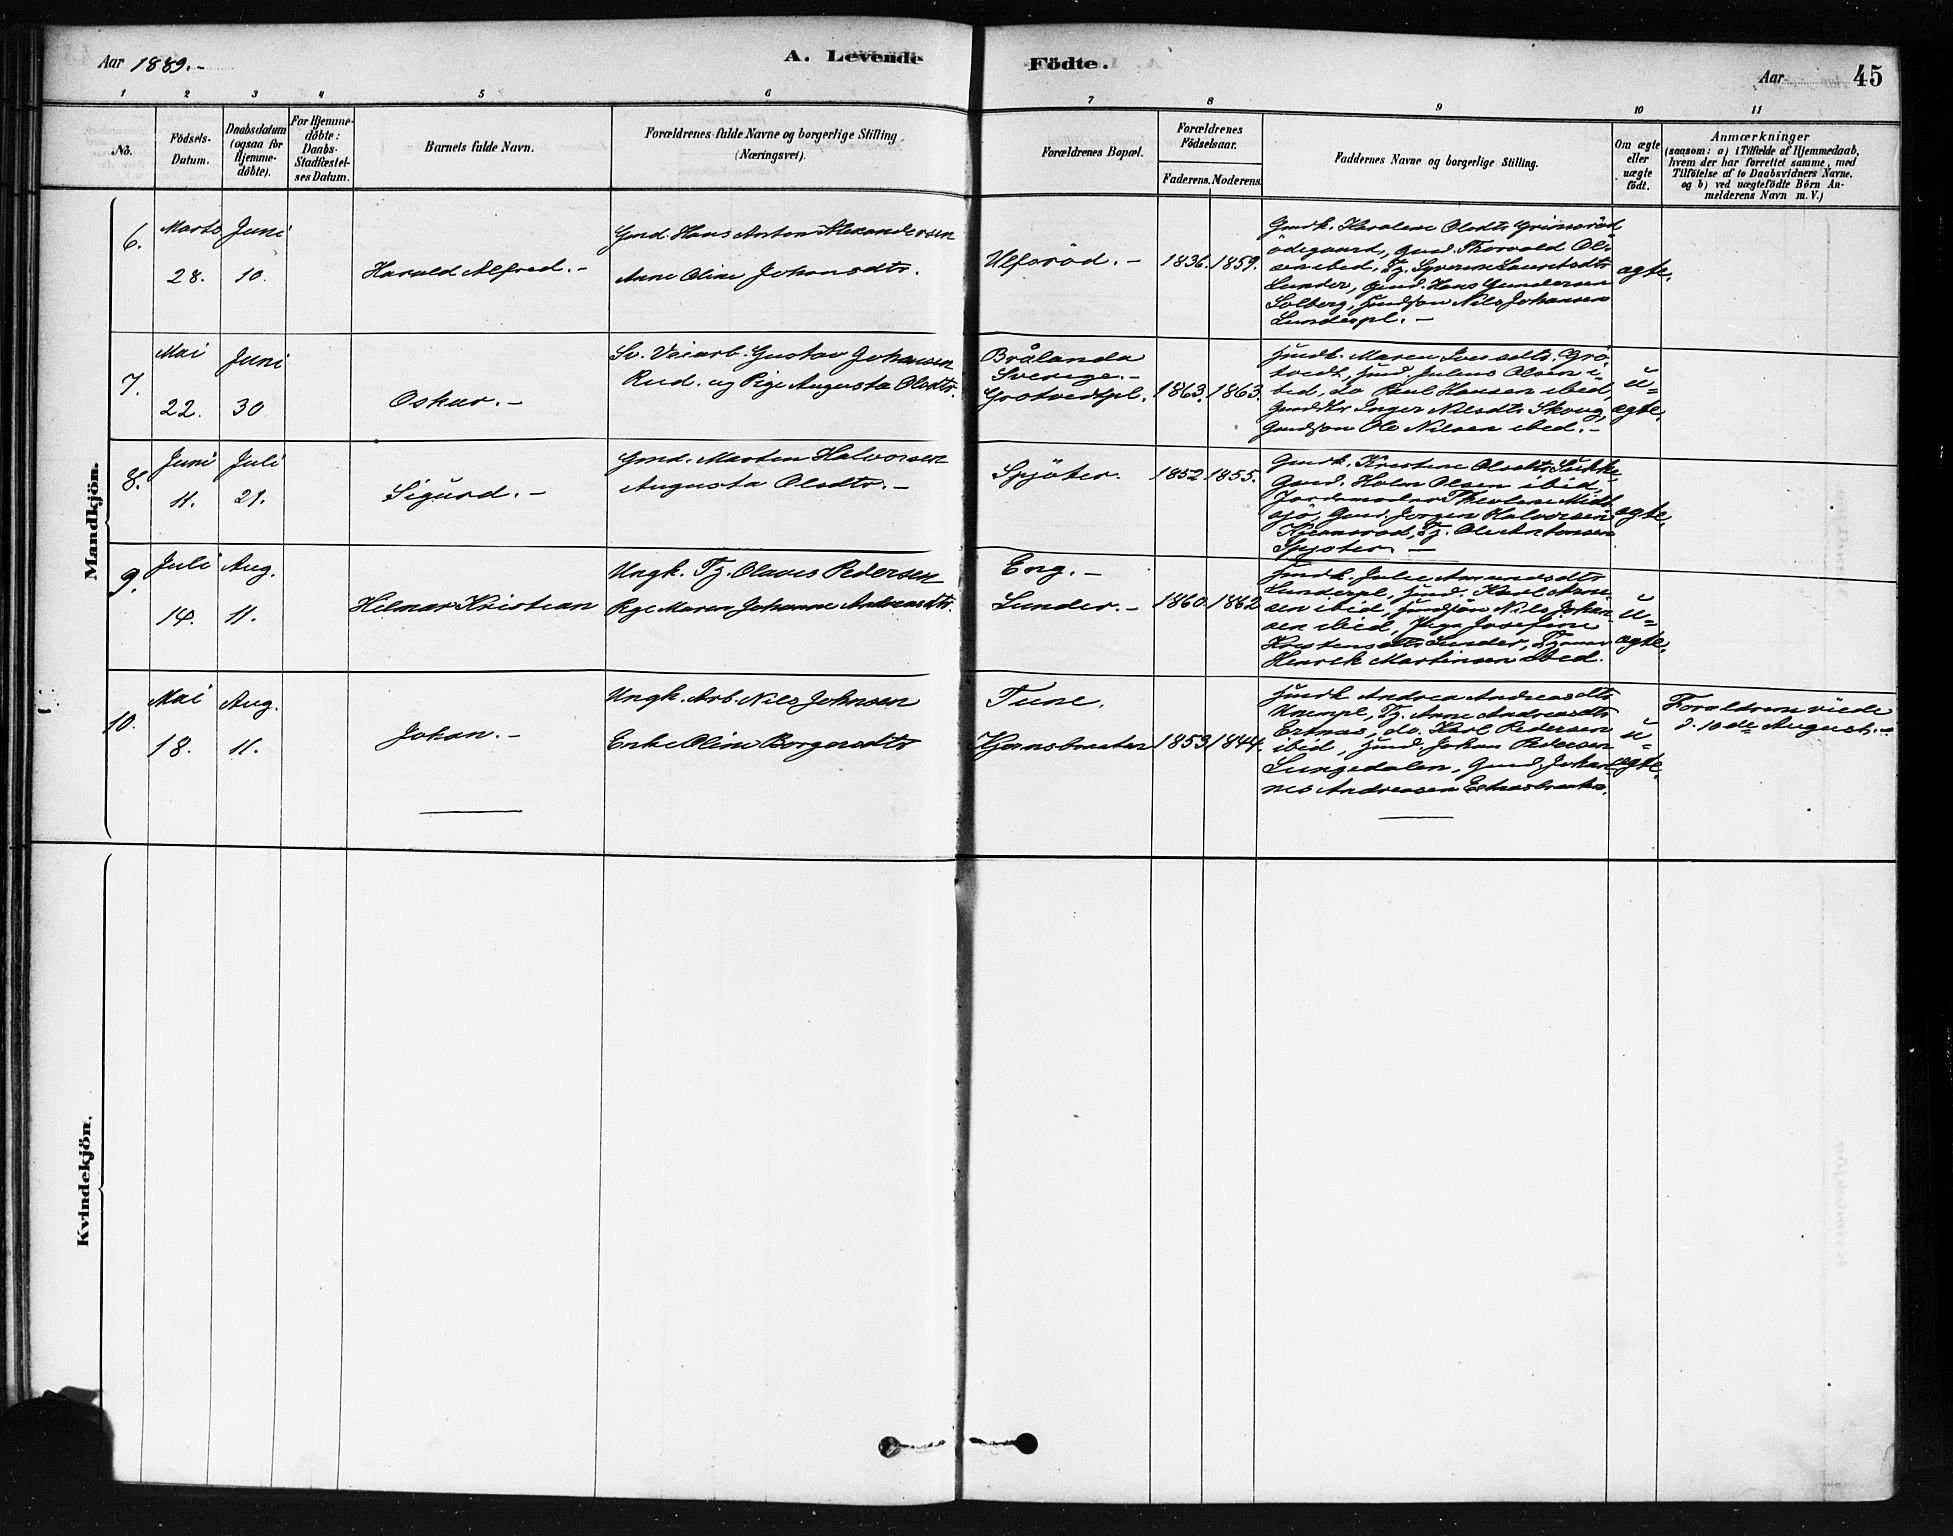 Aar 1889.-
A. Levende
Födte.
Aar
45
1 2 3 4 5 6 7 8 9 10 11
No.
Födsels-
Datum.
Daabsdatum
(ogsaa för
Hjemme-
döbte).
For Hjemme-
döbte:
Daabs-
Stadfæstel-
ses Datum.
Barnets fulde Navn.
Forældrenes fulde Navne og borgerlige Stilling
(Næringsvei).
Forældrenes Bopæl.
Forældrenes
Födselsaar.
Faderens. Moderens.
Faddernes Navne og borgerlige Stilling.
Om ægte
eller
uægte
født.
Anmærkninger
(saasom: a) i Tilfælde af Hjemmedaab,
hvem der har forrettet samme, med
Tilföielse af to Daabsvidners Navne.
og b) ved uægtefödte Börn An-
melderens Navn m. V.)
Mandkjön.
6.
Marts
28.
Juni
10.
Harald Alfred.-
Gmd. Hans Anton Alexandersen
Anne Oline Johansdtr.
Ulferöd.-
1836. 1859.
Gmdk. Karoline Olsdtr. Grimsröd
ödegaard, Gmd. Thorvald Ol-
sen ibid, Tj. Syverine Lauritsdtr
Lunder, Gmd. Hans Gundersen
Solberg, Husm.søn Nils Johansen
Lunderpl.-
ægte.
7.
Mai
22.
Juni
30
Oskar.-
Sv. Veiarb. Gustav Johansen
Rud. og Pige Augusta Olsdtr.
Brålanda
Sverige.-
Grotvedtpl.
1863. 1863.
Husmk. Maren Iversdtr. Grö-
tvedt, Husm. Julius Olsen i-
bid, do Paul Hansen ibid,
Gmdtr. Inger Nilsdtr. Skoug,
Gmdsøn Ole Nilsen ibid.-
u-
ægte.
8.
Juni
11.
Juli
21.
Sigurd.-
Gmd. Marten Halvorsen
Augusta Olsdtr.-
Spjöter.
1852. 1855.
Gmdk. Kristine Olsdtr.
Gmd. Olsen ibid,
Jordemoder
Gmd. Jørgen Halvorsen
Tj. Ole Antonsen
Spjøter.-
ægte.
9.
Juli
14.
Aug.
11.
Hilmar Kristian
Ungk. Tj. Olaves Pedersen
Pige Maren Johanne Andreasdtr.
Eng.-
Lunder.-
1860. 1862
Husmk. Julie Amundsdtr.
Lunderpl, Husm. Karl
sen ibid, Husmsøn Nils Johan-
sen ibid, Pige Josefine
Kristensdtr. Lunder,
Henrik Martinsen ibid.
u-
ægte.
10.
Mai
18.
Aug.
11.
Johan.-
Ungk. Arb. Nils Johnsen
Enke Oline Borgersdtr
Tune.
1853. 1844.
Husmk. Andrea Andreasdtr.
Tj. Anne Andreasdtr
do. Karl Pedersen
ibid, Husm. Johan Pedersen
Lungedalen, Gmd. Johan-
nes Andreasen
u-
ægte.
Forældrene viede
d. 10de August.-
Kvindekjön.